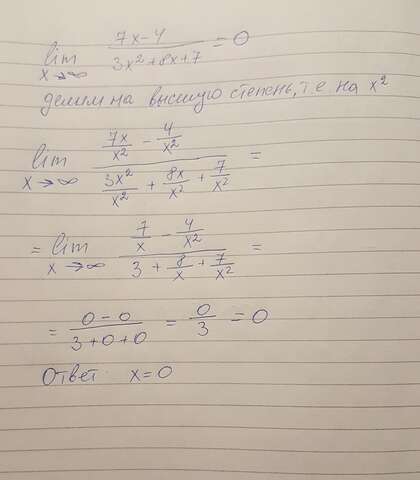 lim x→∞ (7x-4)/(3x²+8x+7) = 0
делим на высшую степень, т.е на x²
lim x→∞ (7x/x² - 4/x²)/(3x²/x² + 8x/x² + 7/x²) =
= lim x→∞ (7/x - 4/x²)/(3 + 8/x + 7/x²) =
= (0-0)/(3+0+0) = 0/3 = 0
Ответ: x=0